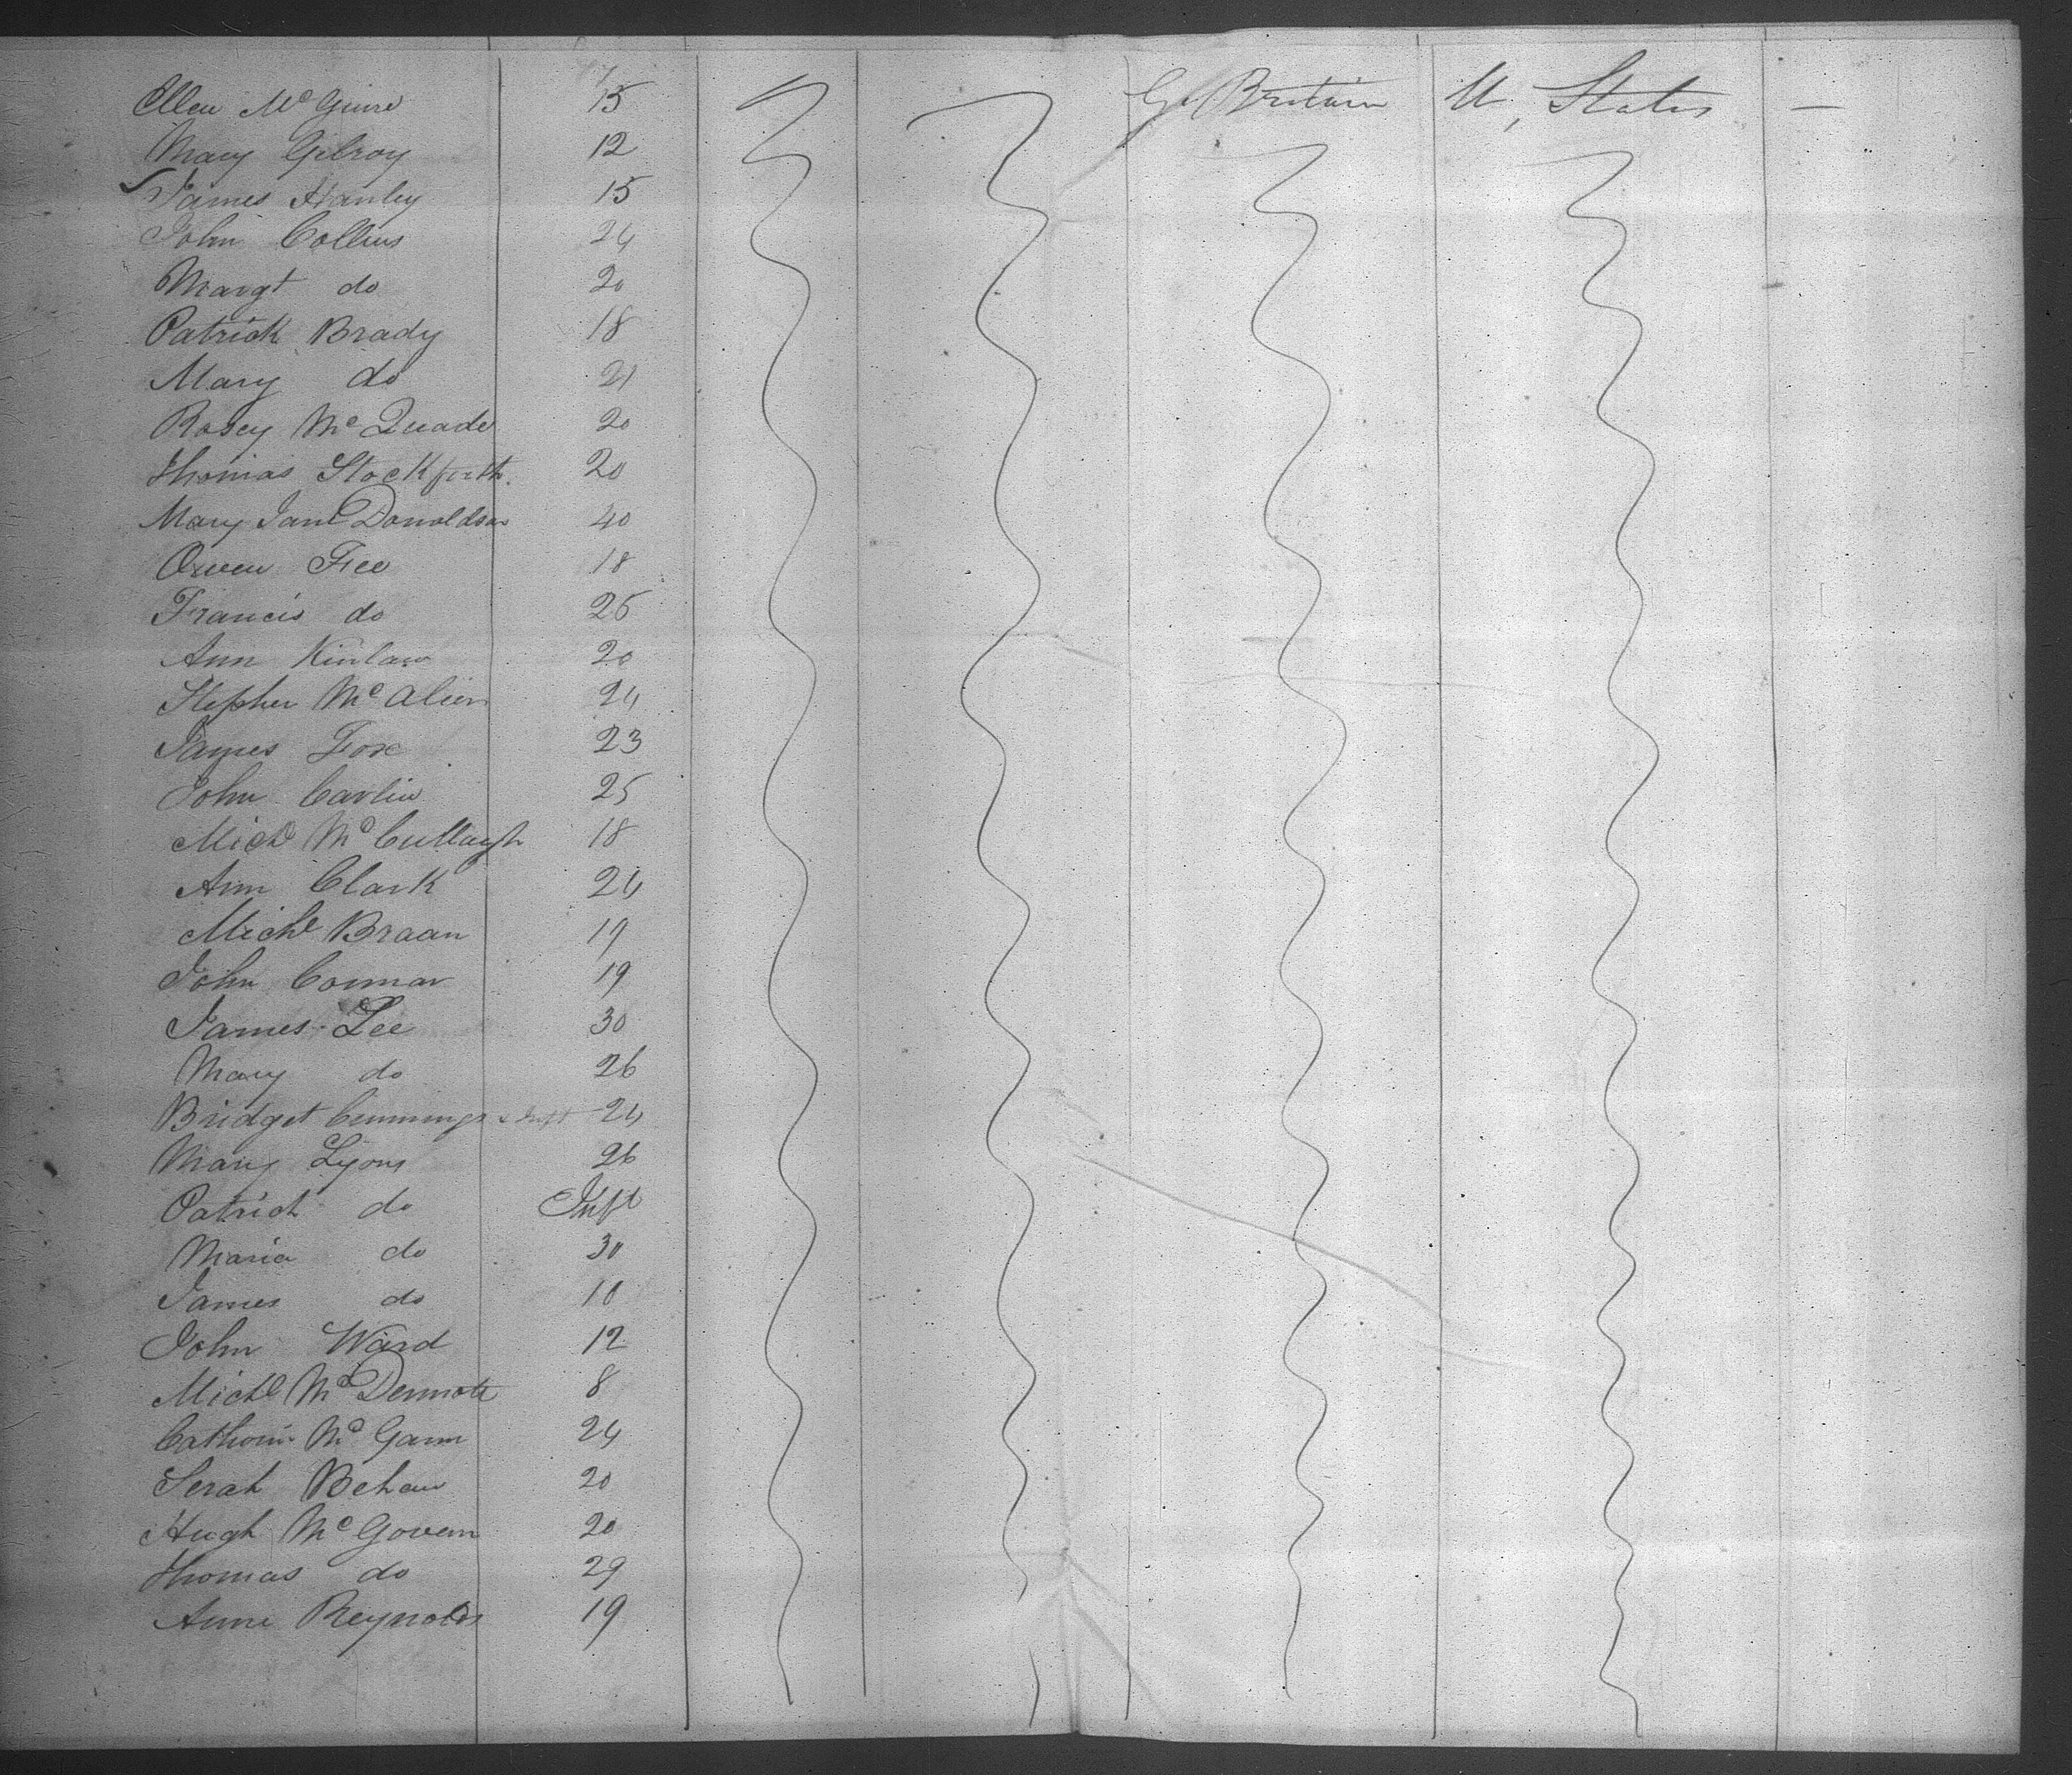 Ellen McGuire 15 Gt Britain U, States —
Mary Gilroy 12
James Hanley 15
John Collins 24
Margt do 20
Patrick Brady 18
Mary do 21
Rosey McQuade 20
Thomas 20
Mary Jane Donaldson 40
Owen Fee 18
Francis do 25
Ann Kinlaw 20
Stephen 24
James Fox 23
John Carlin 25
Michl McCullaugh 18
Ann Clark 24
Michl Braan 19
John Connar 19
James Lee 30
Mary do 26
Bridget Cummings & Inft 24
Mary Lyons 26
Patrick do Inft
Maria do 30
James do 10
John Ward 12
Michl McDermott 8
McGann 24
Serah Behan 20
Hugh McGovern 20
Thomas do 29
Anne Reynolds 19